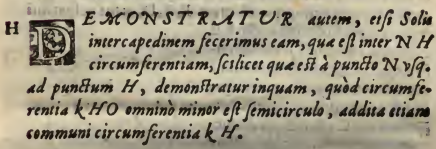 H DEMONSTRATUR autem, etsi Solis
intercapedinem fecerimus eam, quæ est inter N H
circumferentiam, scilicet quæ est à puncto N vsq.
ad punctum H, demonstratur inquam, quòd circumfe-
rentia k HO omninò minor est semicirculo, addita etiam
communi circumferentia k H.